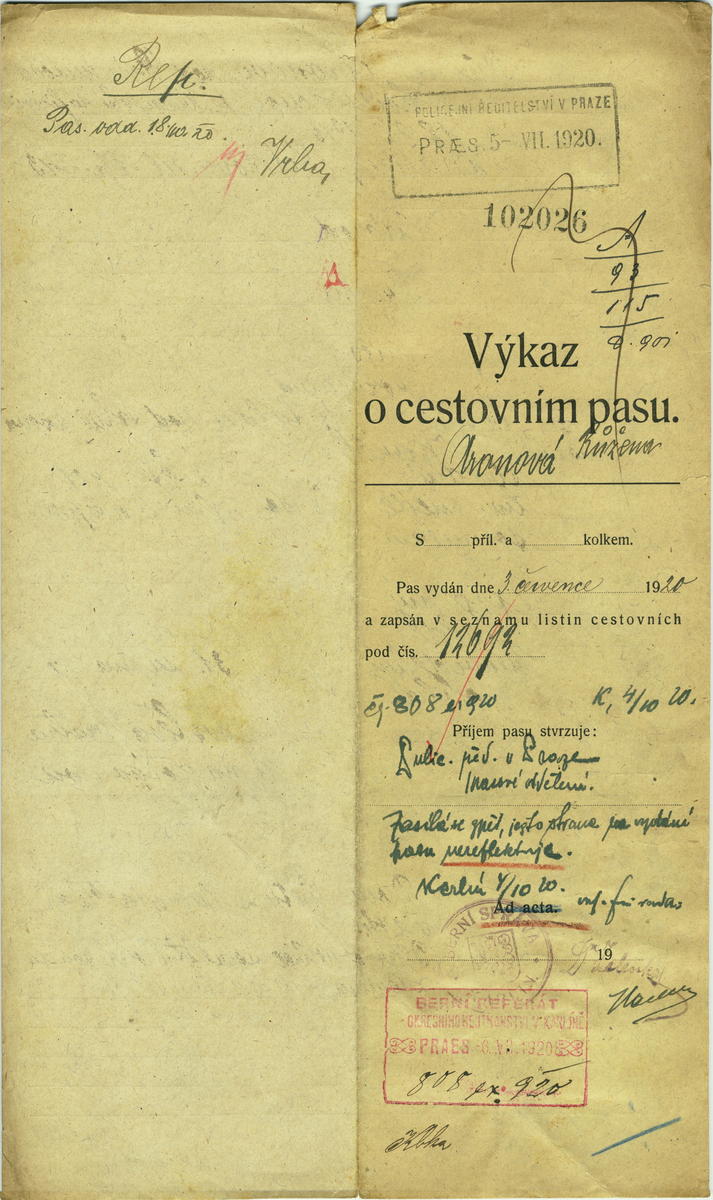 Rep.
Pas. vyd.
Vrba
POLICEJNÍ ŘEDITELSTVÍ V PRAZE
PRÆS. 5- VII. 1920.
102026
A
93
115
Výkaz
o cestovním pasu.
Aronová Růžena
S příl. a kolkem.
Pas vydán dne 3. července 1920
a zapsán v seznamu listin cestovních
pod čís. 12692
čj. 808 ex 920 K, 4/10 20.
Příjem pasu stvrzuje:
Polic. řed. v Praze
pasové oddělení.
Zasílá se zpět, ježto strana na vydání
pasu nereflektuje.
Karlín 4/10 20.
Ad acta.
BERNÍ SPRÁVA
19
BERNÍ REFERÁT
PRAES 1920
808 ex. 920